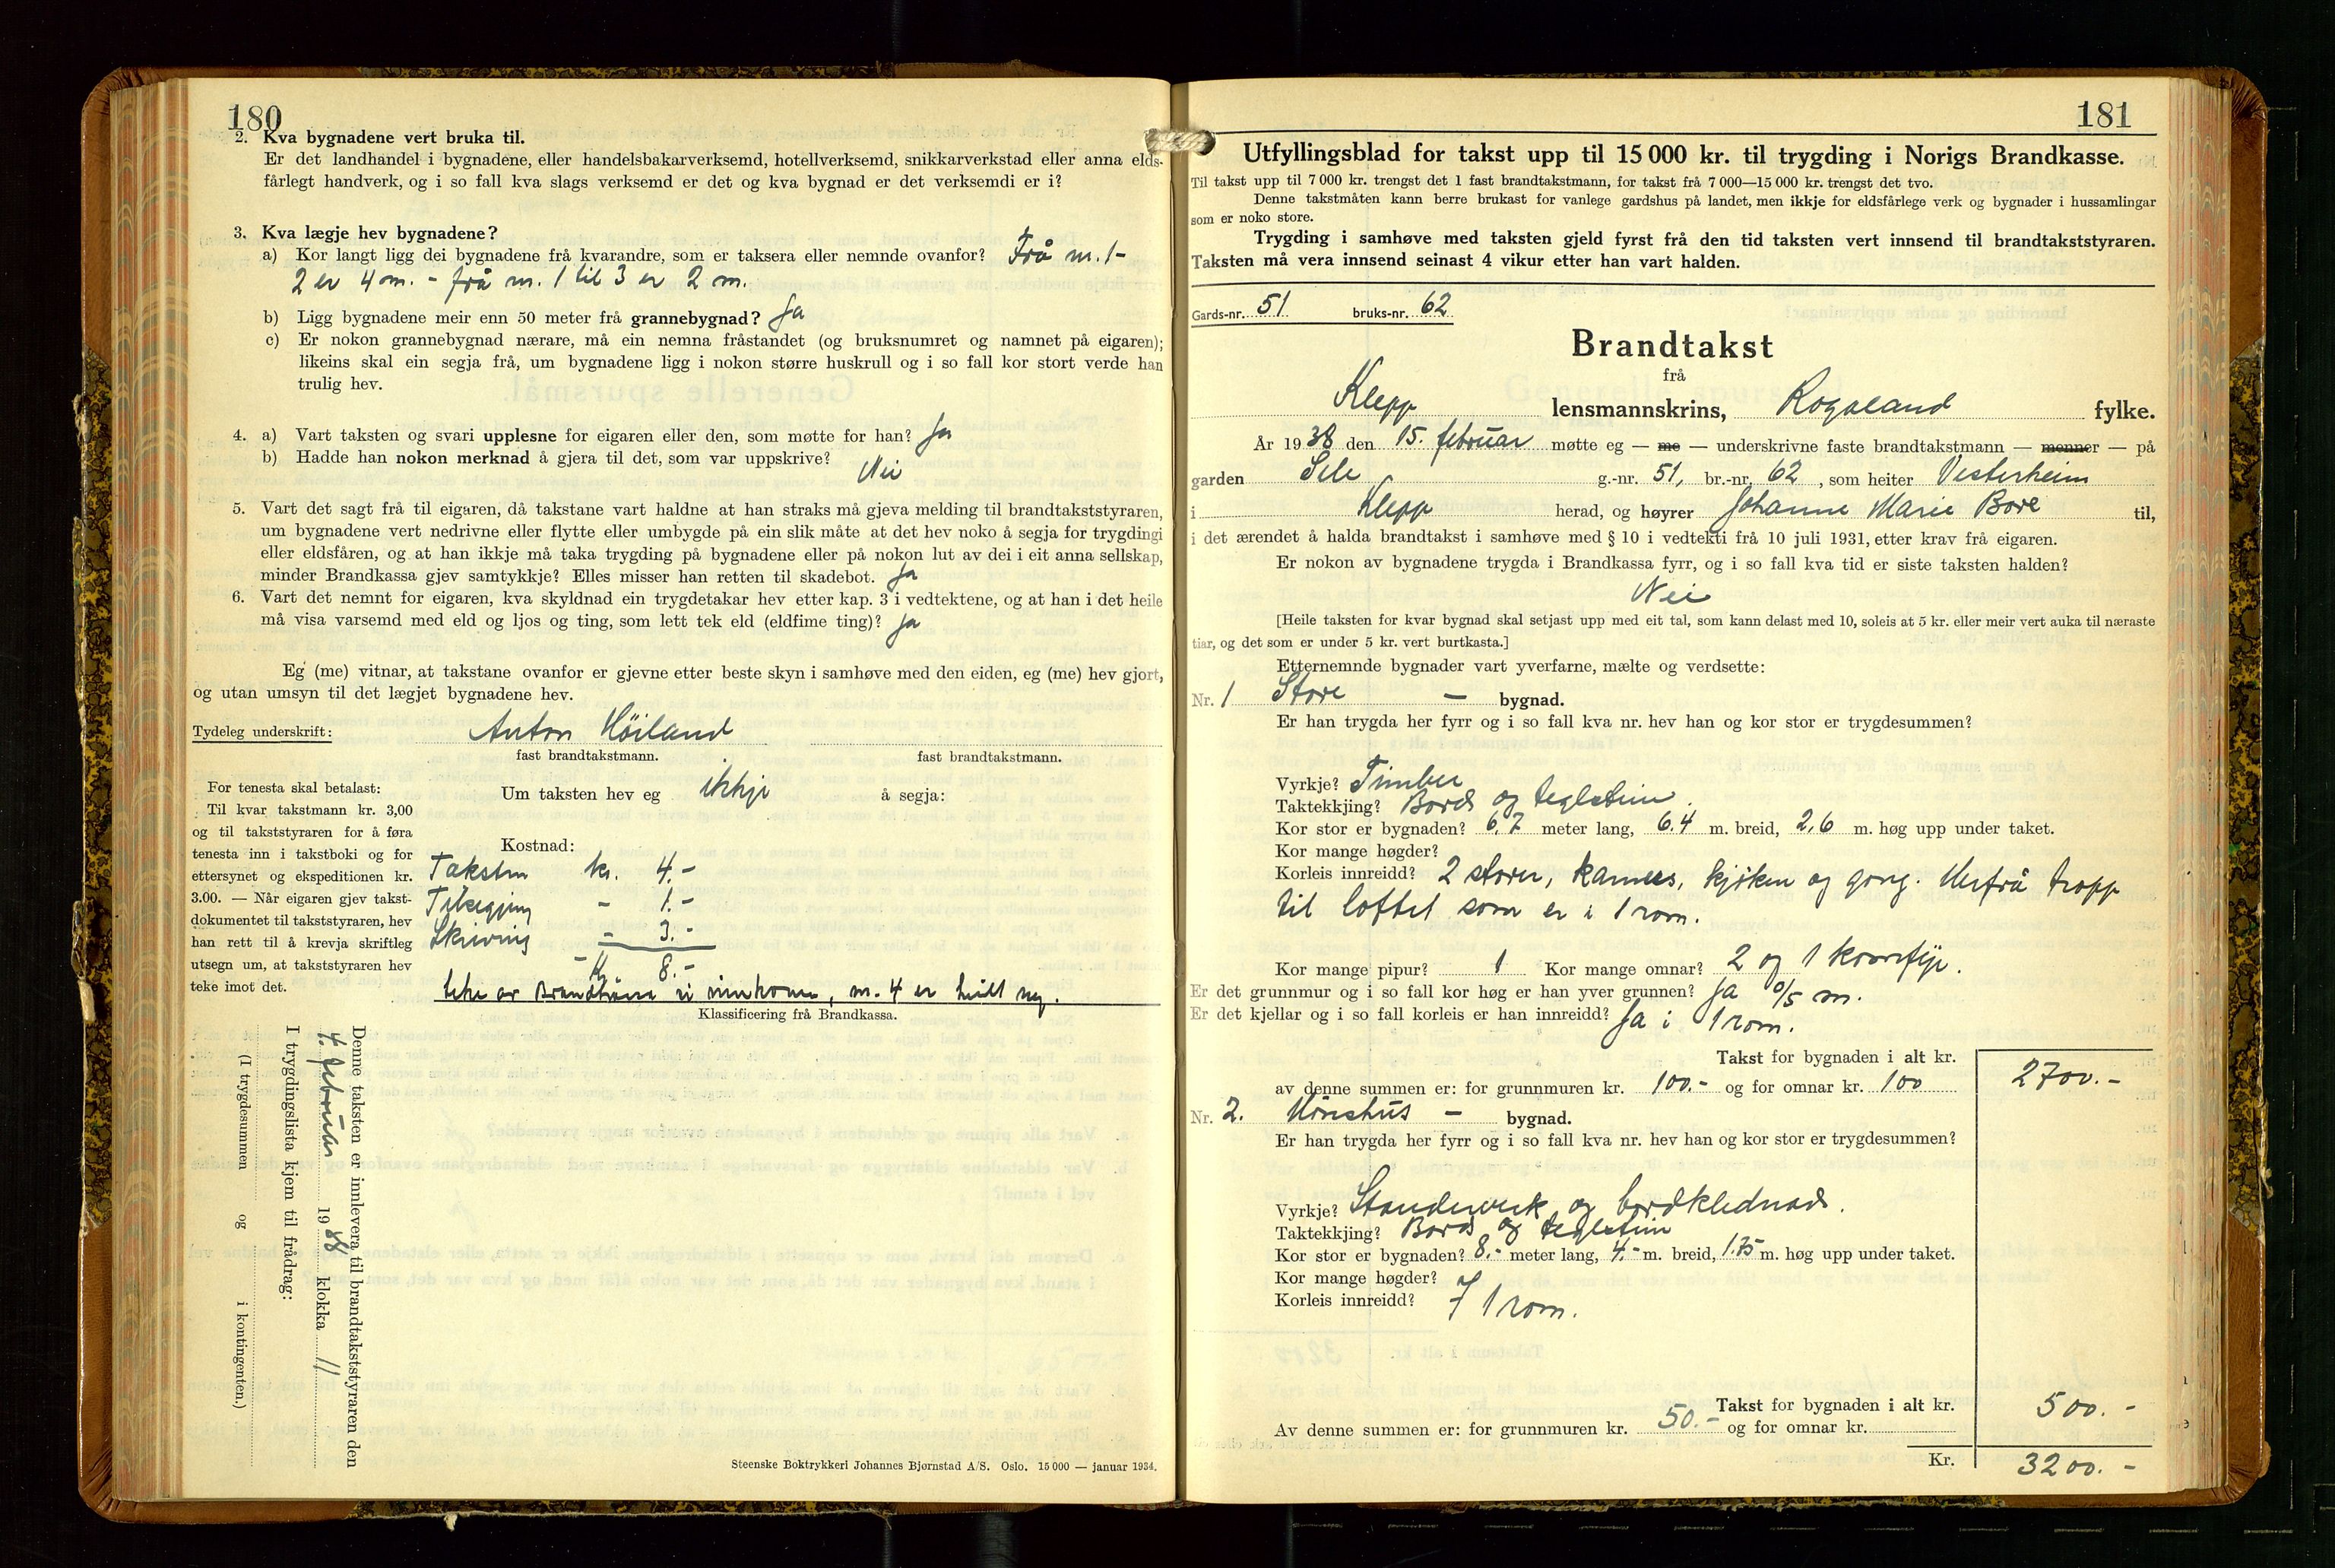 180
2. Kva bygnadene vert bruka til.
Er det landhandel i bygnadene, eller handelsbakarverksemd, hotellverksemd, snikkarverkstad eller anna elds-
fårlegt handverk, og i so fall kva slags verksemd er det og kva bygnad er det verksemdi er i?
3. Kva lægje hev bygnadene?
a) Kor langt ligg dei bygnadene frå kvarandre, som er taksera eller nemnde ovanfor? Frå nr. 1-
2 er 4 m. - frå nr. 1 til 3 er 2 m.
b) Ligg bygnadene meir enn 50 meter frå grannebygnad? Ja
c) Er nokon grannebygnad nærare, må ein nemna fråstandet (og bruksnumret og namnet på eigaren);
likeins skal ein segja frå, um bygnadene ligg i nokon større huskrull og i so fall kor stort verde han
trulig hev.
4. a) Vart taksten og svari upplesne for eigaren eller den, som møtte for han? Ja
b) Hadde han nokon merknad å gjera til det, som var uppskrive?
Nei
5. Vart det sagt frå til eigaren, då takstane vart haldne at han straks må gjeva melding til brandtakststyraren,
um bygnadene vert nedrivne eller flytte eller umbygde på ein slik måte at det hev noko å segja for trygdingi
eller eldsfåren, og at han ikkje må taka trygding på bygnadene eller på nokon lut av dei i eit anna sellskap,
minder Brandkassa gjev samtykkje? Elles misser han retten til skadebot. Ja
6. Vart det nemnt for eigaren, kva skyldnad ein trygdetakar hev etter kap. 3 i vedtektene, og at han i det heile
må visa varsemd med eld og ljos og ting, som lett tek eld (eldfime ting)? Ja
Eg (me) vitnar, at takstane ovanfor er gjevne etter beste skyn i samhøve med den eiden, eg (me) hev gjort,
og utan umsyn til det lægjet bygnadene hev.
Tydeleg underskrift: Anton Höiland
fast brandtakstmann. fast brandtakstmann.
For tenesta skal betalast:
Til kvar takstmann kr. 3,00
og til takststyraren for å føra
tenesta inn i takstboki og for
ettersynet og ekspeditionen kr.
3.00. — Når eigaren gjev takst-
dokumentet til takststyraren, hev
han rett til å krevja skriftleg
utsegn um, at takststyraren hev
teke imot det.
Um taksten hev eg ikkje å segja:
Kostnad:
Taksten kr. 4.-
Tilsegjing - 1.-
Skriving - 3.-
8.-
nr. 4 er
Klassificering frå Brandkassa.
Denne taksten er innlevera til brandtakststyraren den
4. februar 1938 klokka 11
I trygdingslista kjem til frådrag:
(I trygdesummen og i kontingenten.)
Steenske Boktrykkeri Johannes Bjørnstad A/S. Oslo. 15 000 — januar 1934.
181
Utfyllingsblad for takst upp til 15 000 kr. til trygding i Norigs Brandkasse.
Til takst upp til 7 000 kr. trengst det 1 fast brandtakstmann, for takst frå 7 000—15 000 kr. trengst det tvo.
Denne takstmåten kann berre brukast for vanlege gardshus på landet, men ikkje for eldsfårlege verk og bygnader i hussamlingar
som er noko store.
Trygding i samhøve med taksten gjeld fyrst frå den tid taksten vert innsend til brandtakststyraren.
Taksten må vera innsend seinast 4 vikur etter han vart halden.
Gards-nr. 51 bruks-nr. 62
Brandtakst
frå
Klepp lensmannskrins, Rogaland fylke.
År 1938 den 15. februar møtte eg — me — underskrivne faste brandtakstmann — menner — på
garden Sele g.-nr. 51, br.-nr. 62, som heiter Vesterheim
i Klepp herad, og høyrer Johanne Marie Bore til,
i det ærendet å halda brandtakst i samhøve med § 10 i vedtekti frå 10 juli 1931, etter krav frå eigaren.
Er nokon av bygnadene trygda i Brandkassa fyrr, og i so fall kva tid er siste taksten halden?
Nei
[Heile taksten for kvar bygnad skal setjast upp med eit tal, som kann delast med 10, soleis at 5 kr. eller meir vert auka til næraste
tiar, og det som er under 5 kr. vert burtkasta.]
Etternemnde bygnader vart yverfarne, mælte og verdsette:
Nr. 1 Store — bygnad.
Er han trygda her fyrr og i so fall kva nr. hev han og kor stor er trygdesummen?
Vyrkje? Timber
Taktekkjing? Bord og teglstein.
Kor stor er bygnaden? 6,7 meter lang, 6.4 m. breid, 2,6 m. høg upp under taket.
Kor mange høgder?
Korleis innreidd? 2 stover, kamers, kjøken og gong. Herfrå tropp
til loftet som er i 1 rom.
Kor mange pipur? 1 Kor mange omnar? 2 og 1 komfyr.
Er det grunnmur og i so fall kor høg er han yver grunnen? Ja 0/5 m.
Er det kjellar og i so fall korleis er han innreidd? Ja i 1 rom.
Takst for bygnaden i alt kr. 2700.-
av denne summen er: for grunnmuren kr. 100.- og for omnar kr. 100
Nr. 2. Hönshus — bygnad.
Er han trygda her fyrr og i so fall kva nr. hev han og kor stor er trygdesummen?
Vyrkje? Standerverk og bordklednad.
Taktekkjing? Bord og teglstein
Kor stor er bygnaden? 8.- meter lang, 4.- m. breid, 1.75 m. høg upp under taket.
Kor mange høgder?
Korleis innreidd? I 1 rom.
Takst for bygnaden i alt kr. 500.-
Av denne summen er: for grunnmuren kr. 50.- og for omnar kr.
Kr. 3200.-